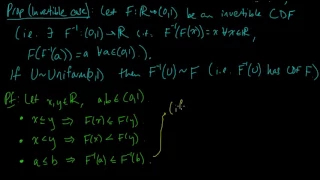 Prop (Invertible case): Let F: ℝ→(0,1) be an invertible CDF
(i.e. ∃ F⁻¹: (0,1)→ℝ s.t. F⁻¹(F(x))=x ∀x∈ℝ,
F(F⁻¹(a))=a ∀a∈(0,1)).
If U~Uniform(0,1) then F⁻¹(U)~F (i.e. F⁻¹(U) has CDF F)
Pf: Let x,y∈ℝ, a,b∈(0,1)
• x≤y ⇒ F(x)≤F(y)
• x<y ⇒ F(x)<F(y)
• a≤b ⇒ F⁻¹(a)≤F⁻¹(b).